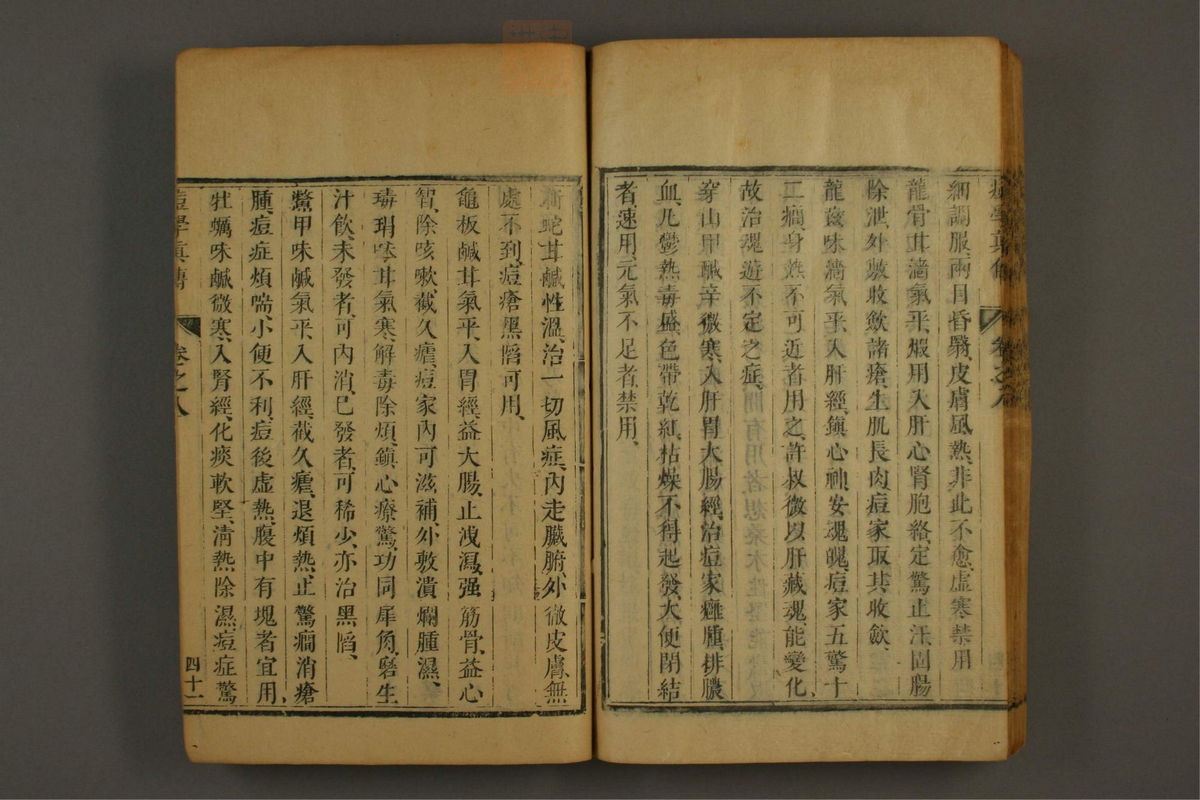 痘學真傳 卷之八
細調服、兩目昏翳、皮膚風熱、非此不愈、虛寒禁用
龍骨甘濇氣平、煆用入肝心腎胞絡、定驚止汗、固腸
除泄、外敷收斂諸瘡、生肌長肉、痘家取其收斂、
龍齒味濇氣平、入肝經、鎮心神、安魂魄、痘家五驚十
二癇、身熱不可近者用之、許叔微以肝藏魂、能變化、
故治魂遊不定之症、
穿山甲鹹辛微寒、入肝胃大腸經、治痘家癰腫、排膿
血、凡鬱熱毒盛、色帶乾紅、枯燥不得起發、大便閉結
者、速用、元氣不足者、禁用、
蘄蛇甘鹹性溫、治一切風症、內走臟腑、外徹皮膚、無
處不到、痘瘡黑陷可用、
龜板鹹甘氣平、入胃經、益大腸、止洩瀉、强筋骨、益心
智、除咳嗽、截久瘧、痘家內可滋補、外敷潰爛腫濕、
瑇瑁味甘氣寒、解毒除煩、鎮心療驚、功同犀角、磨生
汁飲、未發者、可內消、已發者、可稀少、亦治黑陷、
鱉甲味鹹氣平、入肝經、截久瘧、退煩熱、止驚癇、消瘡
腫、痘症煩喘、小便不利、痘後虛熱、腹中有塊者宜用、
牡蠣味鹹微寒、入腎經、化痰軟堅、清熱除濕、痘症驚
痘學真傳 卷之八 四十一